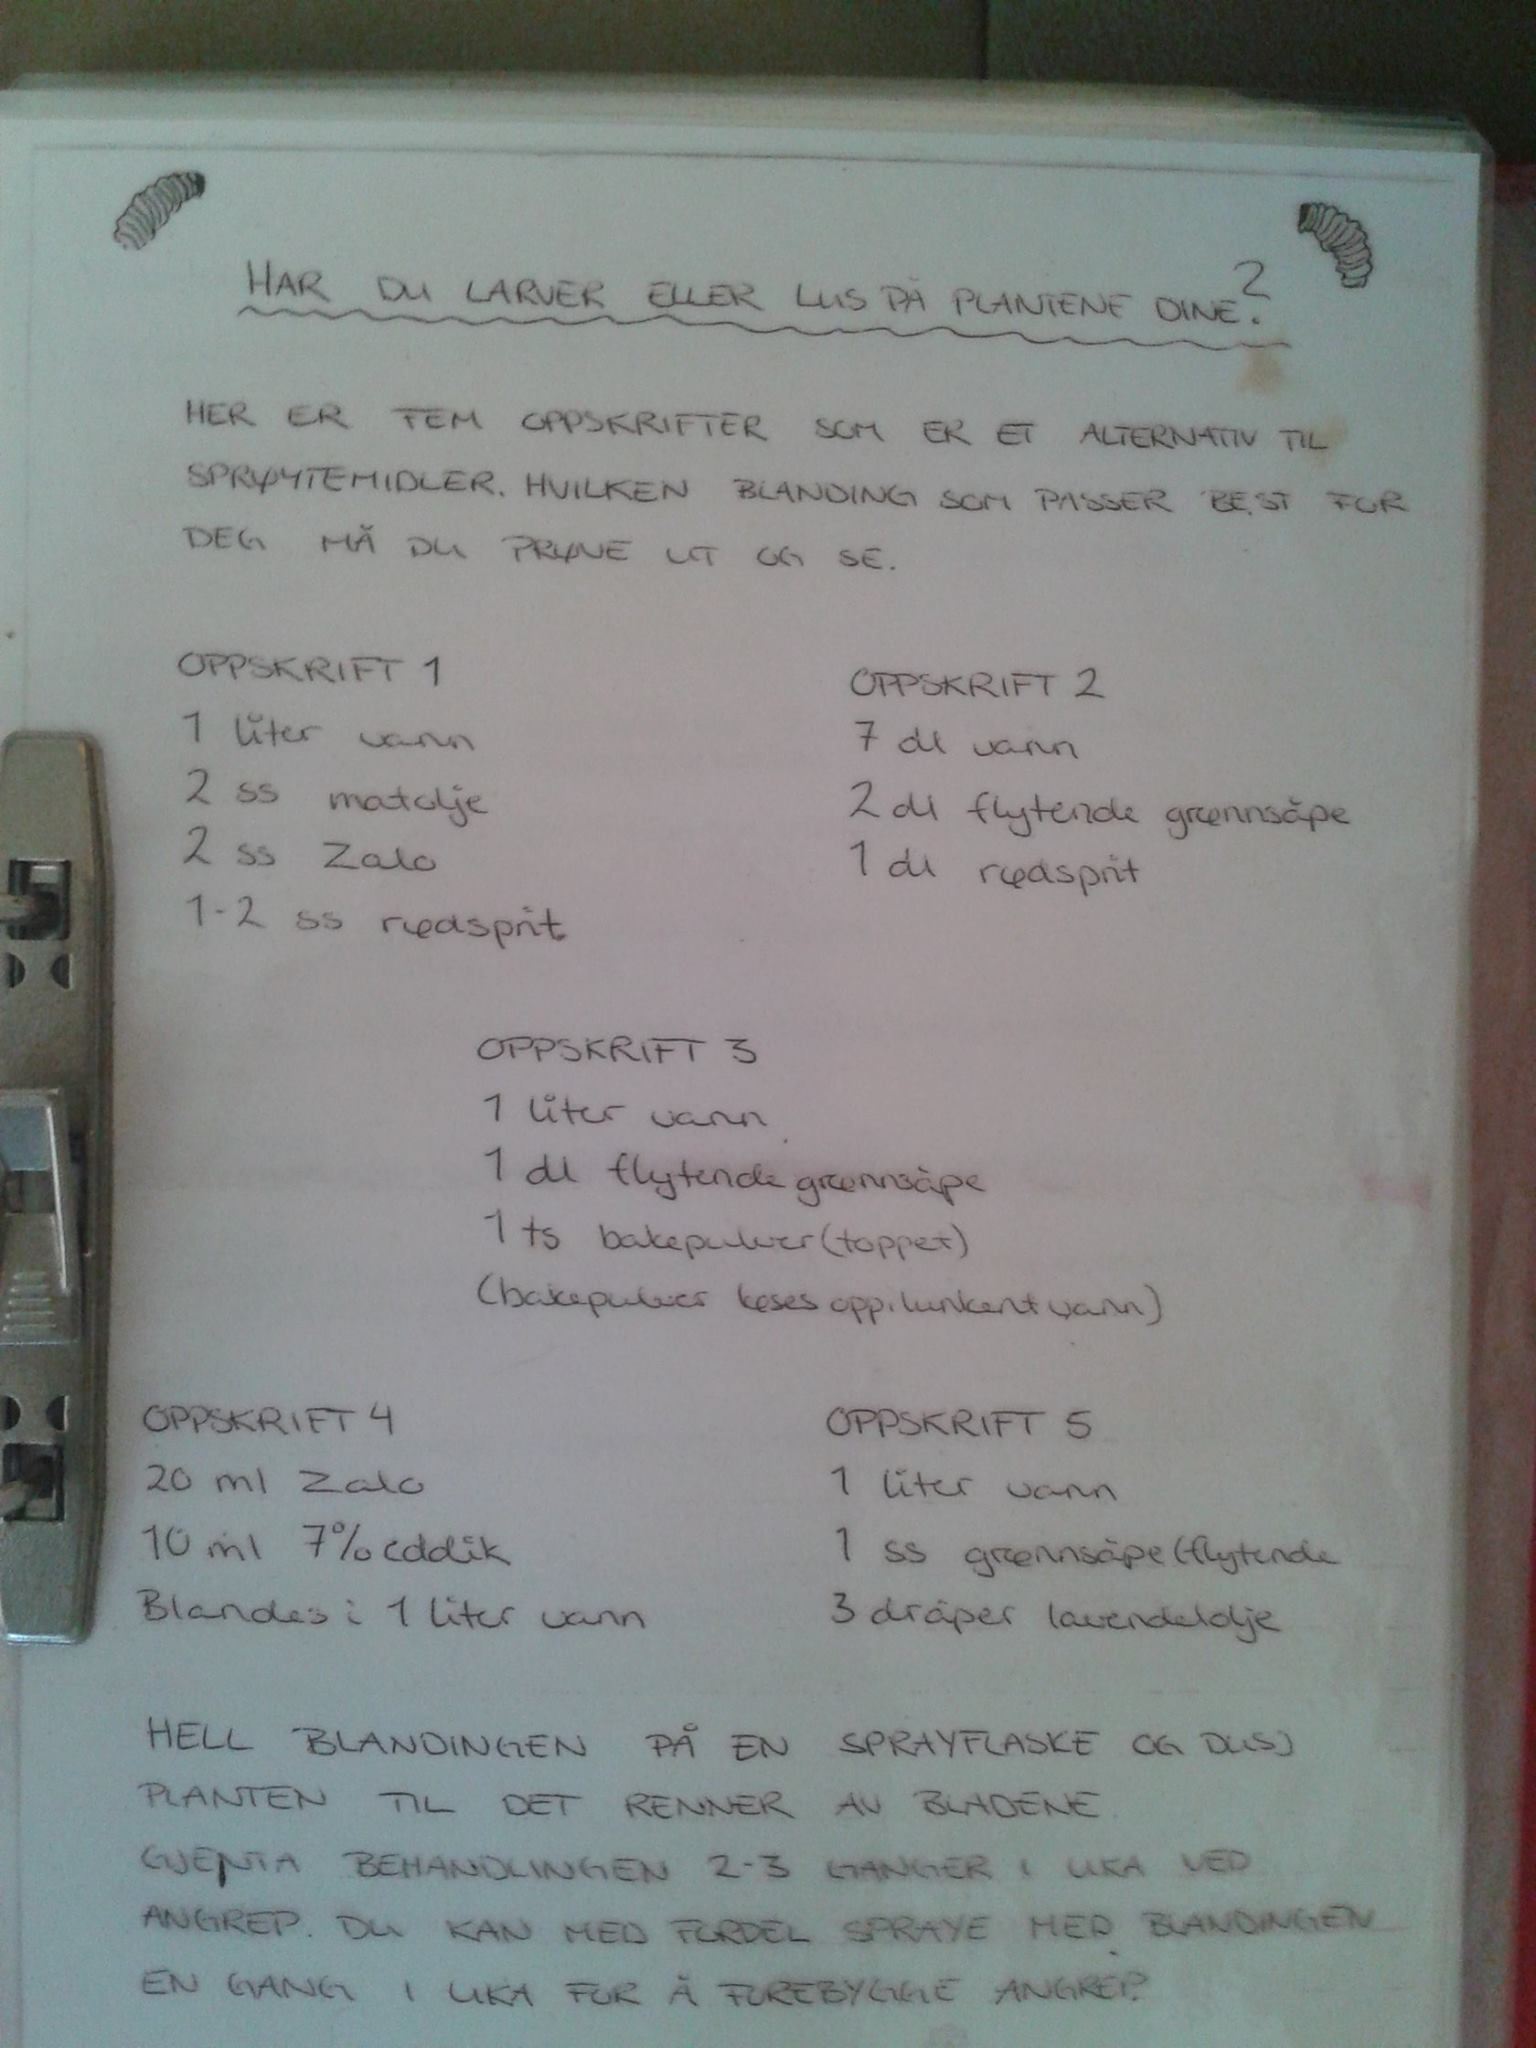 HAR DU LARVER ELLER LUS PÅ PLANTENE DINE?
HER ER FEM OPPSKRIFTER SOM ER ET ALTERNATIV TIL
SPRØYTEMIDLER. HVILKEN BLANDING SOM PASSER BEST FOR
DEG MÅ DU PRØVE UT OG SE.
OPPSKRIFT 1
1 liter vann
2 ss matolje
2 ss Zalo
1-2 ss rødsprit
OPPSKRIFT 2
7 dl vann
2 dl flytende grønnsåpe
1 dl rødsprit
OPPSKRIFT 3
1 liter vann
1 dl flytende grønnsåpe
1 ts bakepulver (toppet)
(bakepulver løses opp i lunkent vann)
OPPSKRIFT 4
20 ml Zalo
10 ml 7% eddik
Blandes i 1 liter vann
OPPSKRIFT 5
1 liter vann
1 ss grønnsåpe (flytende
3 dråper lavendelolje
HELL BLANDINGEN PÅ EN SPRAYFLASKE OG DUSJ
PLANTEN TIL DET RENNER AV BLADENE
GJENTA BEHANDLINGEN 2-3 GANGER I UKA VED
ANGREP. DU KAN MED FORDEL SPRAYE MED BLANDINGEN
EN GANG I UKA FOR Å FOREBYGGE ANGREP.